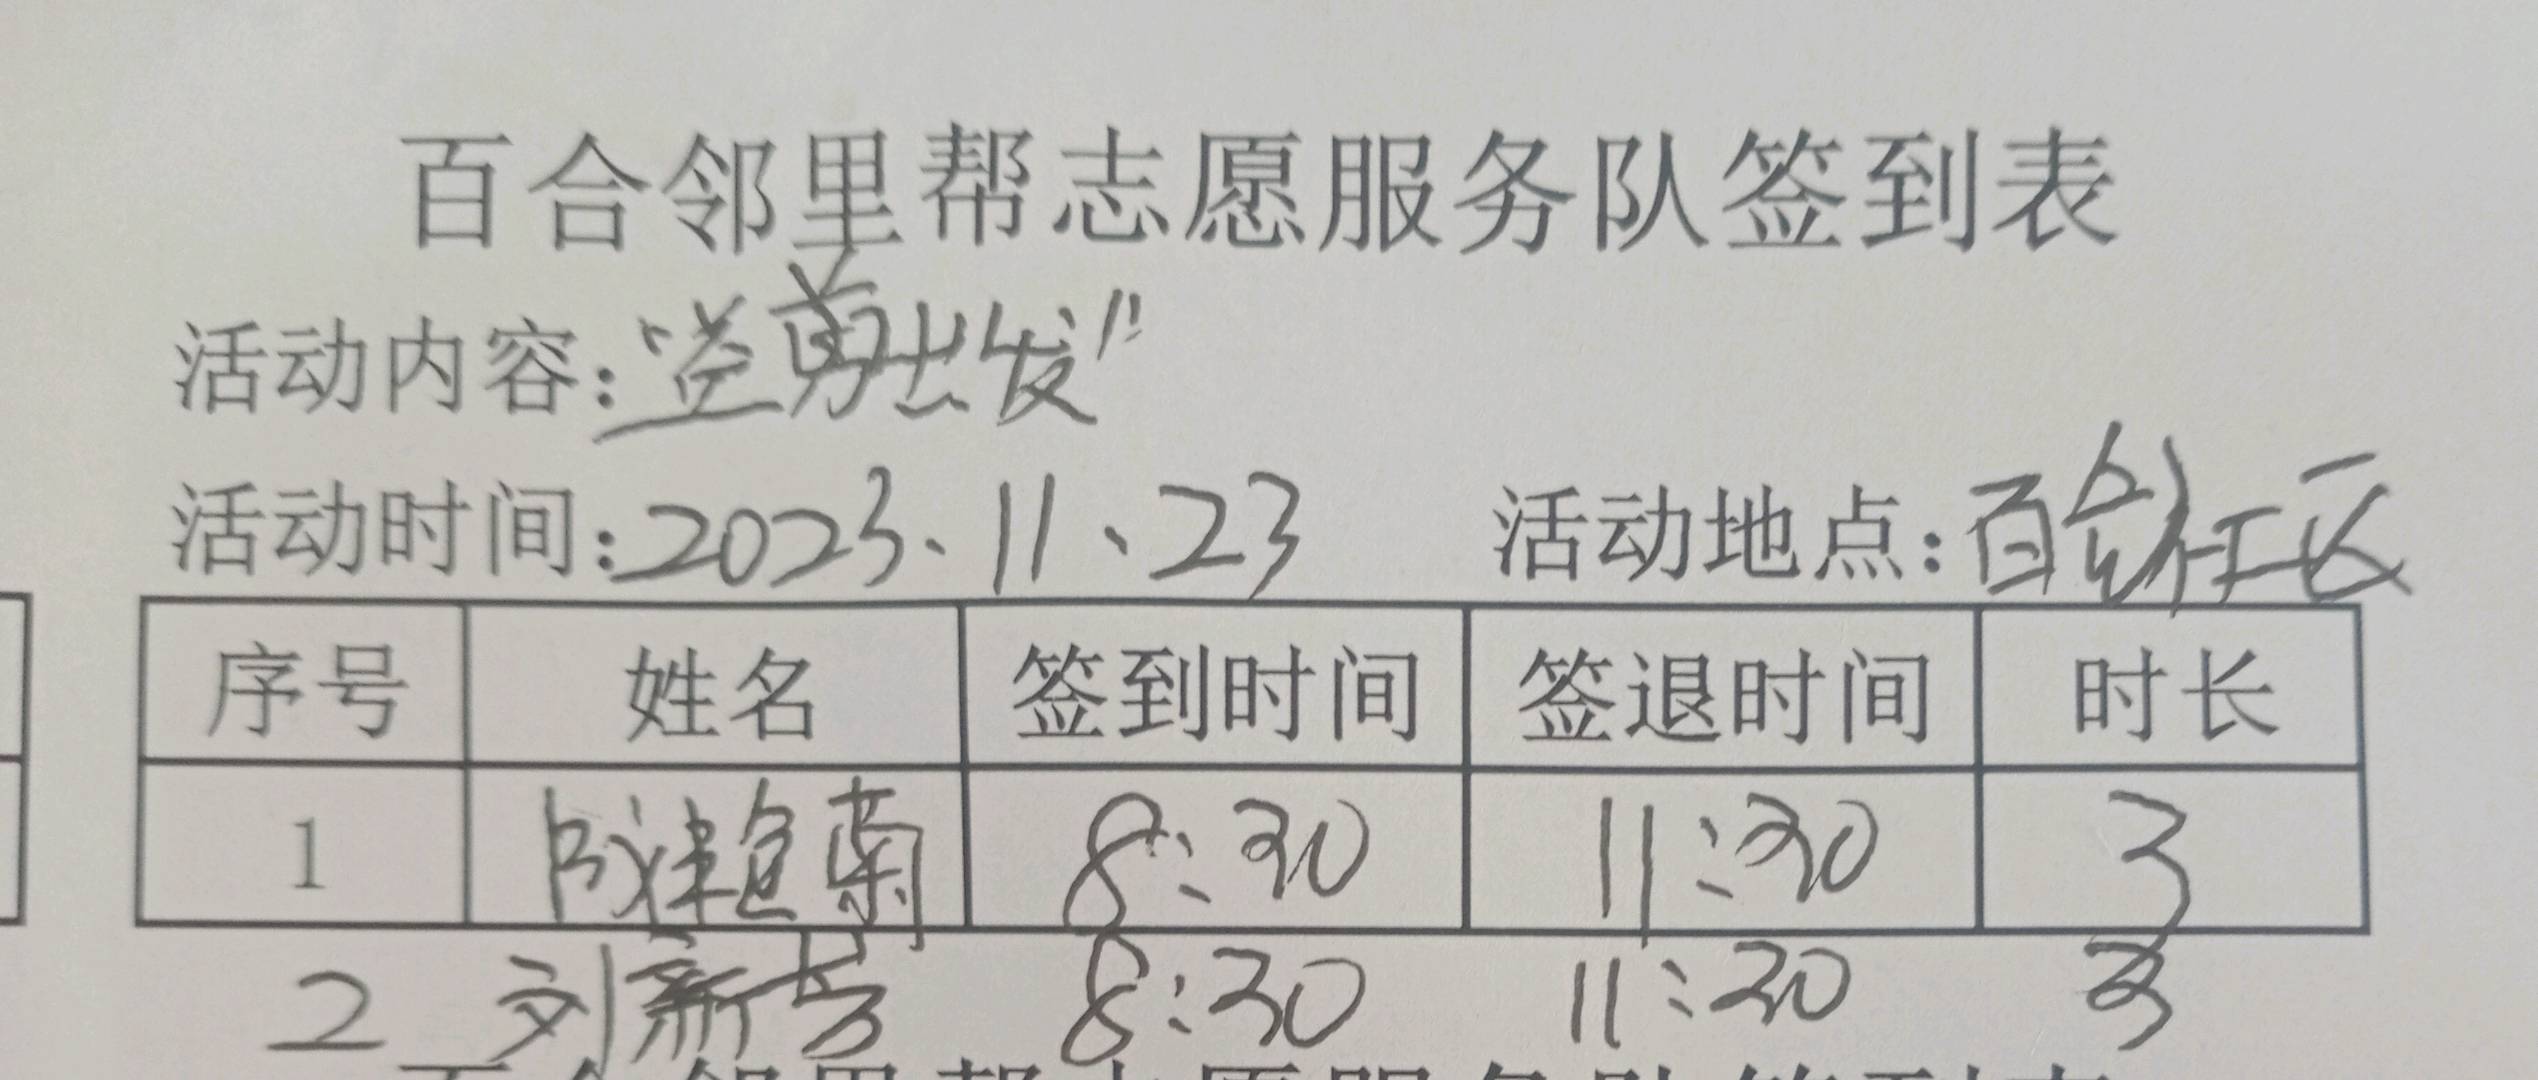 百合邻里帮志愿服务队签到表
活动内容:“益勇出发”
活动时间:2023、11、23 活动地点:百合社区
序号 姓名 签到时间 签退时间 时长
1 8:30 11:30 3
2 刘新芳 8:30 11:30 3
百合邻里帮志愿服务队签到表